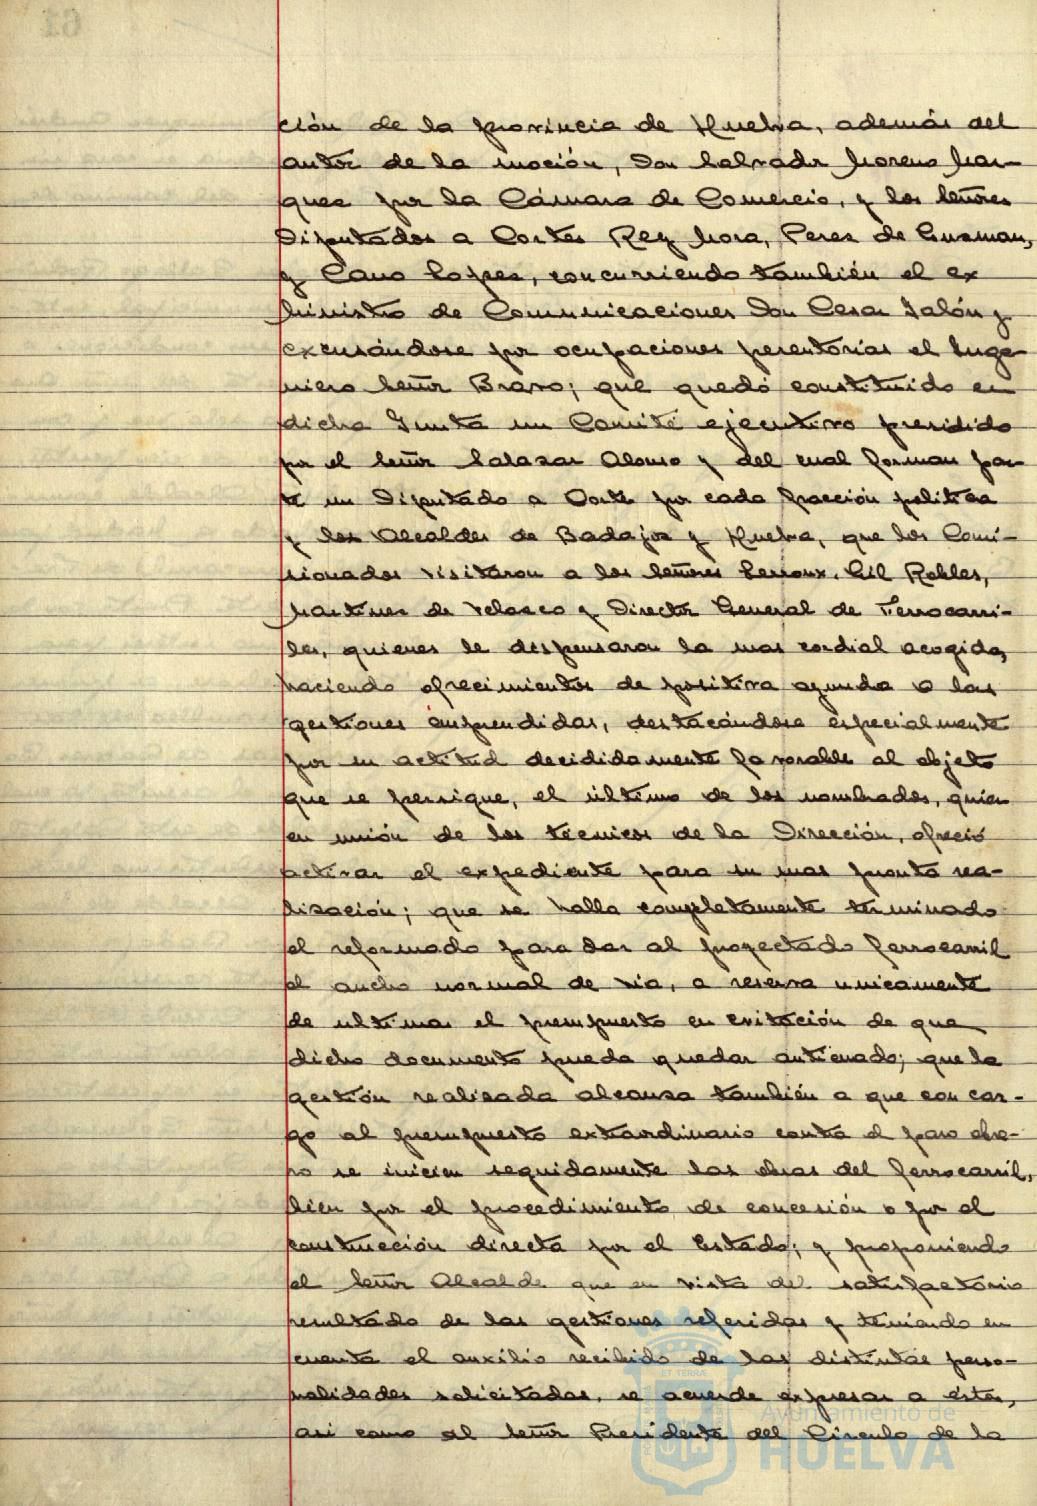 ción de la provincia de Huelva, además del
autor de la moción, Don Salvador Moreno Mar-
quez por la Cámara de Comercio, y los Señores
Diputados a Cortes Rey Mora, Perez de Guzman,
y Cano Lopez, concurriendo también el ex
Ministro de Comunicaciones Don Cesar Jalón y
excusándose por ocupaciones perentorias el Inge-
niero Señor Bravo; que quedó constituido en
dicha Junta un Comité ejecutivo presidido
por el Señor Salazar Alonso y del cual forman par-
te un Diputado a Corte por cada fracción politica
y los Alcaldes de Badajoz y Huelva, que los Comi-
sionados visitaron a los Señores Lerroux, Gil Robles,
Martinez de Velasco y Director General de Ferrocarri-
les, quienes le dispensaron la mas cordial acogida,
haciendo ofrecimientos de positiva ayuda a las
gestiones emprendidas, destacándose especialmente
por su actitud decididamente favorable al objeto
que se persigue, el último de los nombrados, quien
en unión de los técnicos de la Dirección, ofreció
activar el expediente para su mas pronta rea-
lización; que se halla completamente terminado
el reformado para dar al proyectado ferrocarril
el ancho normal de via, a reserva unicamente
de ultimar el presupuesto en evitación de que
dicho documento pueda quedar anticuado; que la
gestión realizada alcanza también a que con car-
go al presupuesto extraordinario contra el paro obre-
ro se inicien seguidamente las obras del ferrocarril,
bien por el procedimiento de concesión o por el
construcción directa por el Estado; y proponiendo
el Señor Alcalde que en vista del satisfactorio
resultado de las gestiones referidas y teniendo en
cuenta el auxilio recibido de las distintas perso-
nalidades solicitadas, se acuerde expresar a éstas,
asi como al Señor Presidente del Círculo de la
Ayuntamiento de
HUELVA